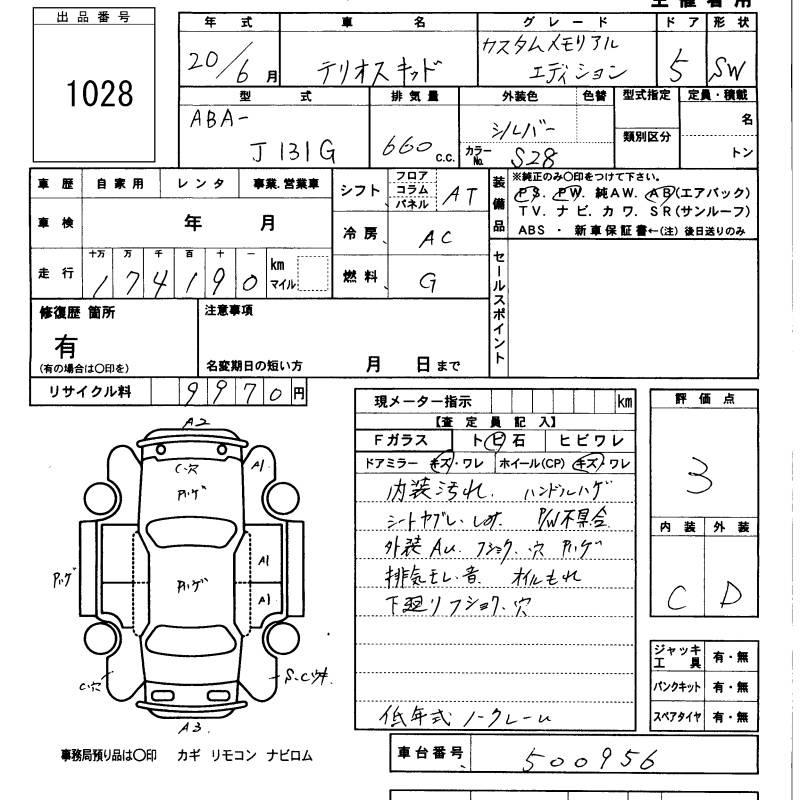 主催者用
出品番号
1028
年式 車名 グレード ドア 形状
20/6月 テリオスキッド カスタムメモリアル エディション 5 SW
型式 排気量 外装色 色替 型式指定 定員・積載
ABA- J131G 660 c.c. シルバー カラーNo. S28 類別区分 名 トン
車歴 自家用 レンタ 事業.営業車
車検 年 月
走行 十万 万 千 百 十 一
174190 km マイル
シフト フロア コラム パネル AT
冷房 AC
燃料 G
装備品 ※純正のみ○印をつけて下さい。
PS. PW. 純AW. AB(エアバック)
TV. ナビ. カワ. SR(サンルーフ)
ABS ・ 新車保証書←(注) 後日送りのみ
セールスポイント
修復歴 箇所
有
(有の場合は○印を)
注意事項
名変期日の短い方 月 日まで
リサイクル料 9970円
現メーター指示 km
【査定員記入】
Fガラス トビ石 ヒビワレ
ドアミラー キズ・ワレ ホイール(CP) キズ・ワレ
内装汚れ. ハンドルハゲ
シートヤブレ. P/W不具合.
外装 フショク. 穴
排気モレ音 オイルもれ
下廻りフショク.穴
低年式 ノークレーム
評価点
3
内装 外装
C D
ジャッキ工具 有・無
パンクキット 有・無
スペアタイヤ 有・無
A2
C.穴
A1
A1
A1
C.穴
A3
事務局預り品は○印 カギ リモコン ナビロム
車台番号 500956